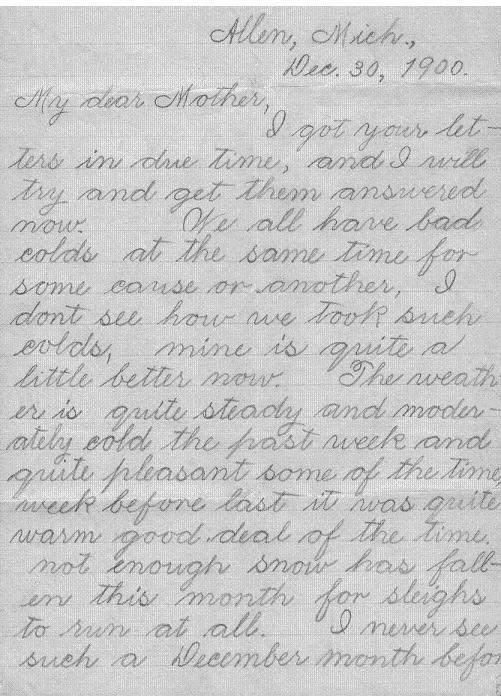 Allen, Mich.,
Dec. 30, 1900.
My dear Mother,
I got your let-
ters in due time, and I will
try and get them answered
now. We all have bad
colds at the same time for
some cause or another, I
dont see how we took such
colds, mine is quite a
little better now. The weath
er is quite steady and moder-
ately cold the past week and
quite pleasant some of the time,
week before last it was quite
warm good deal of the time.
not enough snow has fall-
en this month for sleighs
to run at all. I never see
such a December month befor